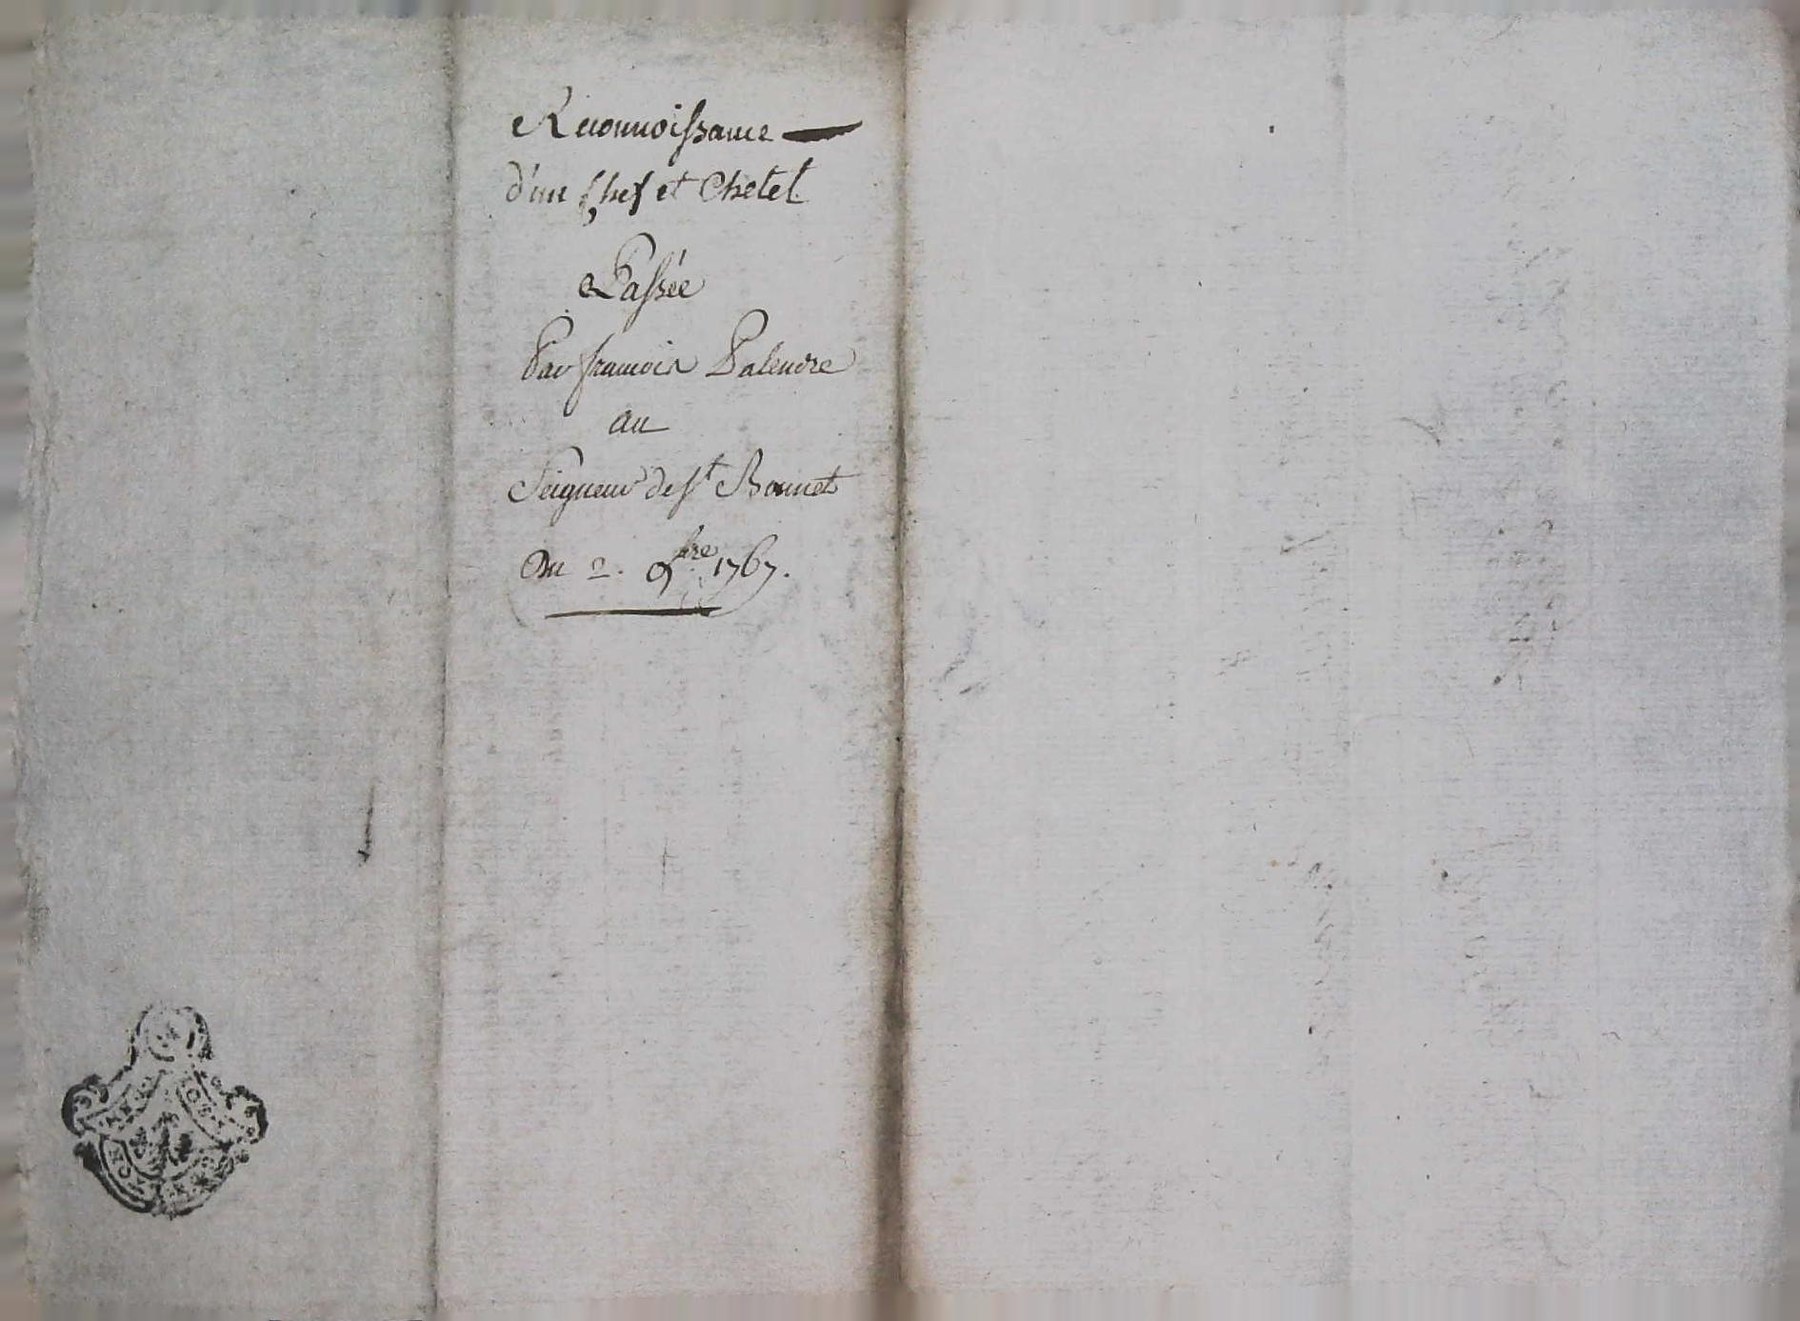 Reconnoissance
d'un chef et Chetel
Passée
Par francois Palendre
au
Seigneur de st Bonnet
Du 2. 9bre 1767.